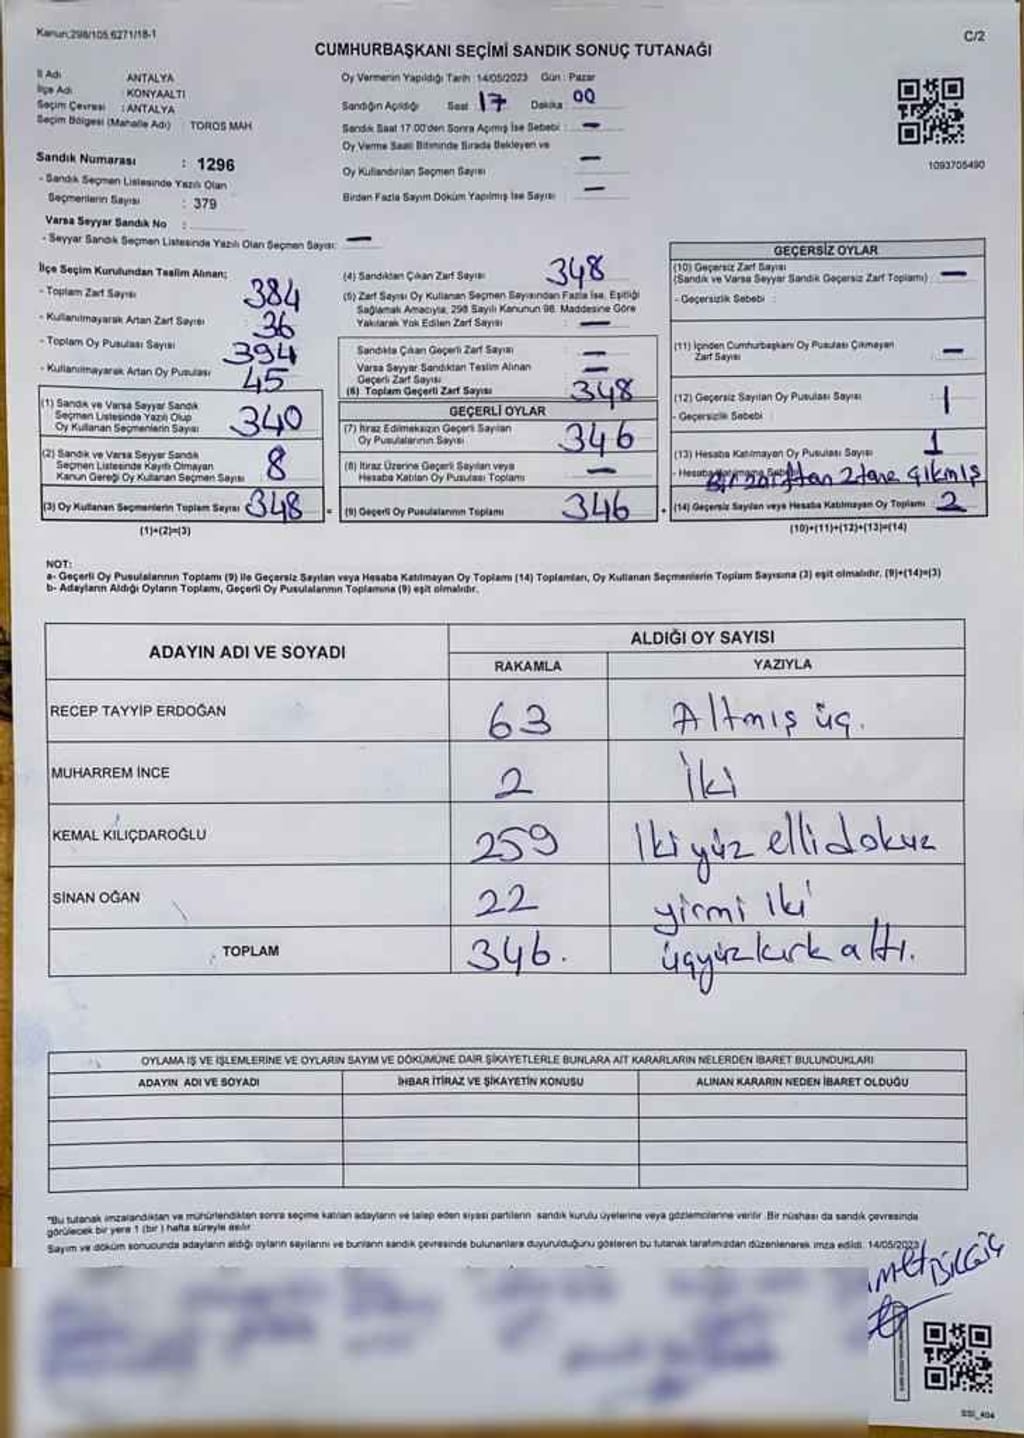 Kanun:298/105.6271/18-1
C/2
CUMHURBAŞKANI SEÇİMİ SANDIK SONUÇ TUTANAĞI
İl Adı ANTALYA
İlçe Adı : KONYAALTI
Seçim Çevresi : ANTALYA
Seçim Bölgesi (Mahalle Adı) : TOROS MAH
Sandık Numarası : 1296
- Sandık Seçmen Listesinde Yazılı Olan
Seçmenlerin Sayısı : 379
Varsa Seyyar Sandık No :
- Seyyar Sandık Seçmen Listesinde Yazılı Olan Seçmen Sayısı: —
Oy Vermenin Yapıldığı Tarih : 14/05/2023 Gün : Pazar
Sandığın Açıldığı Saat 17 Dakika 00
Sandık Saat 17.00'den Sonra Açılmış İse Sebebi : —
Oy Verme Saati Bitiminde Sırada Bekleyen ve
Oy Kullandırılan Seçmen Sayısı —
Birden Fazla Sayım Döküm Yapılmış İse Sayısı : —
1093705490
İlçe Seçim Kurulundan Teslim Alınan;
- Toplam Zarf Sayısı 384
- Kullanılmayarak Artan Zarf Sayısı 36
- Toplam Oy Pusulası Sayısı 394
- Kullanılmayarak Artan Oy Pusulası 45
(1) Sandık ve Varsa Seyyar Sandık
Seçmen Listesinde Yazılı Olup
Oy Kullanan Seçmenlerin Sayısı 340
(2) Sandık ve Varsa Seyyar Sandık
Seçmen Listesinde Kayıtlı Olmayan
Kanun Gereği Oy Kullanan Seçmen Sayısı 8
(3) Oy Kullanan Seçmenlerin Toplam Sayısı : 348 =
(1)+(2)=(3)
(4) Sandıktan Çıkan Zarf Sayısı 348
(5) Zarf Sayısı Oy Kullanan Seçmen Sayısından Fazla İse, Eşitliği
Sağlamak Amacıyla, 298 Sayılı Kanunun 98. Maddesine Göre
Yakılarak Yok Edilen Zarf Sayısı : —
Sandıkta Çıkan Geçerli Zarf Sayısı —
Varsa Seyyar Sandıktan Teslim Alınan
Geçerli Zarf Sayısı —
(6) Toplam Geçerli Zarf Sayısı 348
GEÇERLİ OYLAR
(7) İtiraz Edilmeksizin Geçerli Sayılan
Oy Pusulalarının Sayısı 346
(8) İtiraz Üzerine Geçerli Sayılan veya
Hesaba Katılan Oy Pusulası Toplamı —
(9) Geçerli Oy Pusulalarının Toplamı 346 +
GEÇERSİZ OYLAR
(10) Geçersiz Zarf Sayısı
(Sandık ve Varsa Seyyar Sandık Geçersiz Zarf Toplamı) : —
- Geçersizlik Sebebi :
(11) İçinden Cumhurbaşkanı Oy Pusulası Çıkmayan
Zarf Sayısı —
(12) Geçersiz Sayılan Oy Pusulası Sayısı 1
- Geçersizlik Sebebi :
(13) Hesaba Katılmayan Oy Pusulası Sayısı 1
Bir zarftan 2 tane çıkmış
(14) Geçersiz Sayılan veya Hesaba Katılmayan Oy Toplamı : 2
(10)+(11)+(12)+(13)=(14)
NOT:
a- Geçerli Oy Pusulalarının Toplamı (9) ile Geçersiz Sayılan veya Hesaba Katılmayan Oy Toplamı (14) Toplamları, Oy Kullanan Seçmenlerin Toplam Sayısına (3) eşit olmalıdır. (9)+(14)=(3)
b- Adayların Aldığı Oyların Toplamı, Geçerli Oy Pusulalarının Toplamına (9) eşit olmalıdır.
ADAYIN ADI VE SOYADI ALDIĞI OY SAYISI
RAKAMLA YAZIYLA
RECEP TAYYİP ERDOĞAN 63 Altmış üç.
MUHARREM İNCE 2 İki
KEMAL KILIÇDAROĞLU 259 İkiyüz ellidokuz
SİNAN OĞAN 22 yirmi iki
TOPLAM 346. üçyüzkırk altı.
OYLAMA İŞ VE İŞLEMLERİNE VE OYLARIN SAYIM VE DÖKÜMÜNE DAİR ŞİKAYETLERLE BUNLARA AİT KARARLARIN NELERDEN İBARET BULUNDUKLARI
ADAYIN ADI VE SOYADI İHBAR İTİRAZ VE ŞİKAYETİN KONUSU ALINAN KARARIN NEDEN İBARET OLDUĞU
*Bu tutanak imzalandıktan ve mühürlendikten sonra seçime katılan adayların ve talep eden siyasi partilerin sandık kurulu üyelerine veya gözlemcilerine verilir. Bir nüshası da sandık çevresinde
görülecek bir yere 1 (bir) hafta süreyle asılır.
Sayım ve döküm sonucunda adayların aldığı oyların sayılarını ve bunların sandık çevresinde bulunanlara duyurulduğunu gösteren bu tutanak tarafımızdan düzenlenerek imza edildi. 14/05/2023
BİLGİÇ
SSI_404